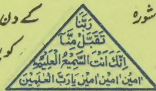 شورہ
کے دن
رَبَّنَا
تَقَبَّلْ مِنَّا
اِنَّكَ اَنْتَ السَّمِيْعُ الْعَلِيْمُ
اٰمین اٰمین اٰمین یَا رَبَّ الْعٰلَمِیْنَ